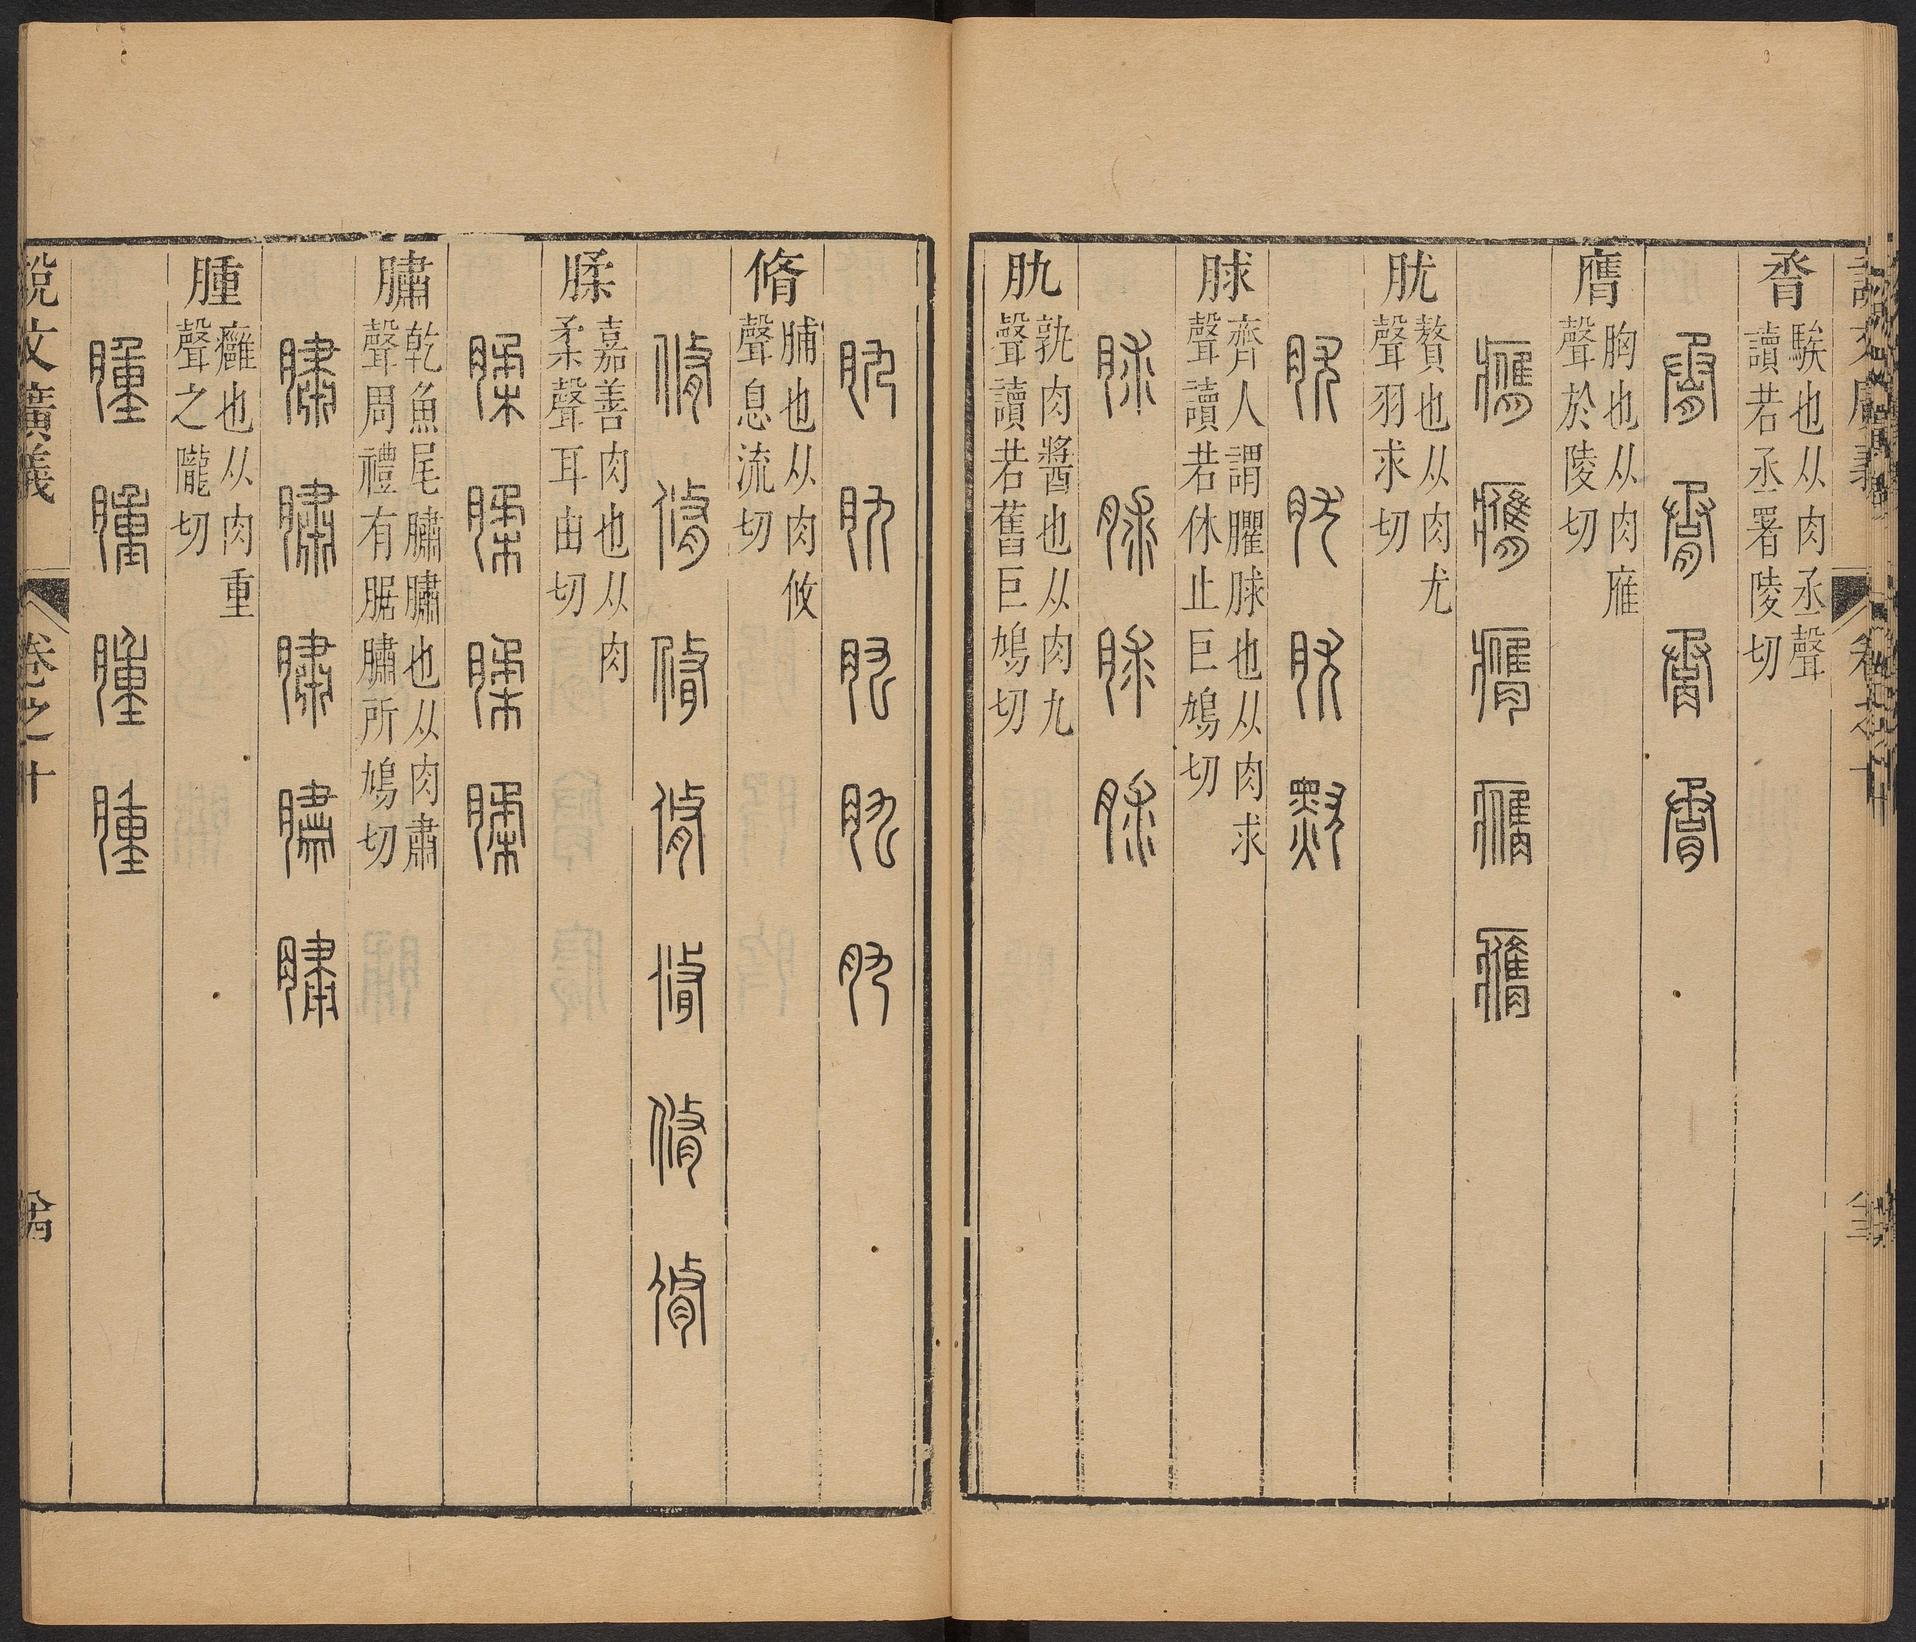 說文廣義
卷之十
脀
騃也从肉丞聲
讀若丞署陵切
脀脀脀脀
膺
胸也从肉䧹
聲於陵切
膺膺膺膺膺
肬
贅也从肉尤
聲羽求切
肬肬肬
脙
齊人謂臞脙也从肉求
聲讀若休止巨鳩切
脙脙脙脙
肍
孰肉醬也从肉九
聲讀若舊巨鳩切
肍肍肍肍肍
脩
脯也从肉攸
聲息流切
脩脩脩脩脩脩脩
腬
嘉善肉也从肉
柔聲耳由切
腬腬腬腬
䐹
乾魚尾䐹䐹也从肉肅
聲周禮有腒䐹所鳩切
䐹䐹䐹䐹䐹
腫
癰也从肉重
聲之隴切
腫腫腫腫
說文廣義
卷之十